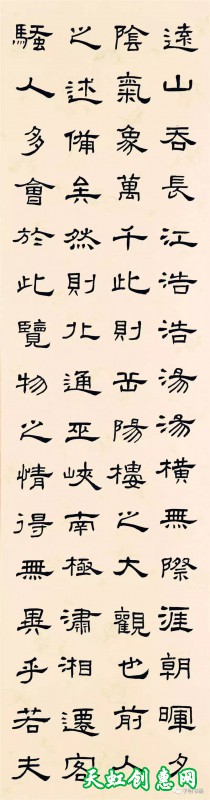 遠山吞長江浩浩湯湯橫無際涯朝暉夕
陰氣象萬千此則岳陽樓之大觀也前人
之述備矣然則北通巫峽南極瀟湘遷客
騷人多會於此覽物之情得無異乎若夫
天虹创意网